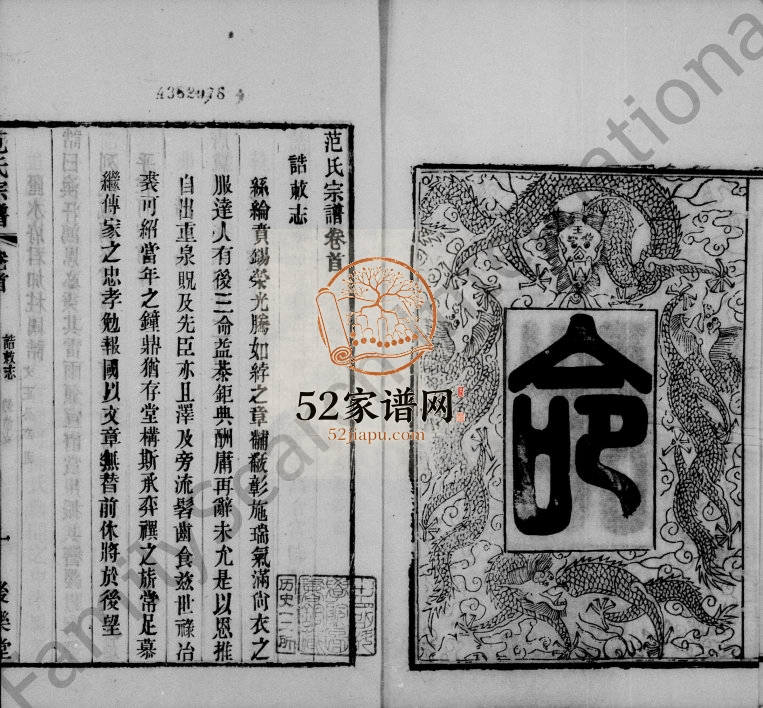 命
4382078
范氏宗譜卷首
誥敕志
絲綸賁錫榮光騰如綍之章黼黻彰施瑞氣滿尚衣之
服達人有後三命益恭鉅典酬庸再辭未允是以恩推
自出重泉旣及先臣亦且澤及旁流髫齒食茲世祿冶
裘可紹當年之鐘鼎猶存堂構斯承弈禩之旂常足慕
繼傳家之忠孝勉報國以文章無替前休將於後望
范氏宗譜
卷首
誥敕志
一
後樂堂
52家谱网
52jiapu.com
FamilySearch International